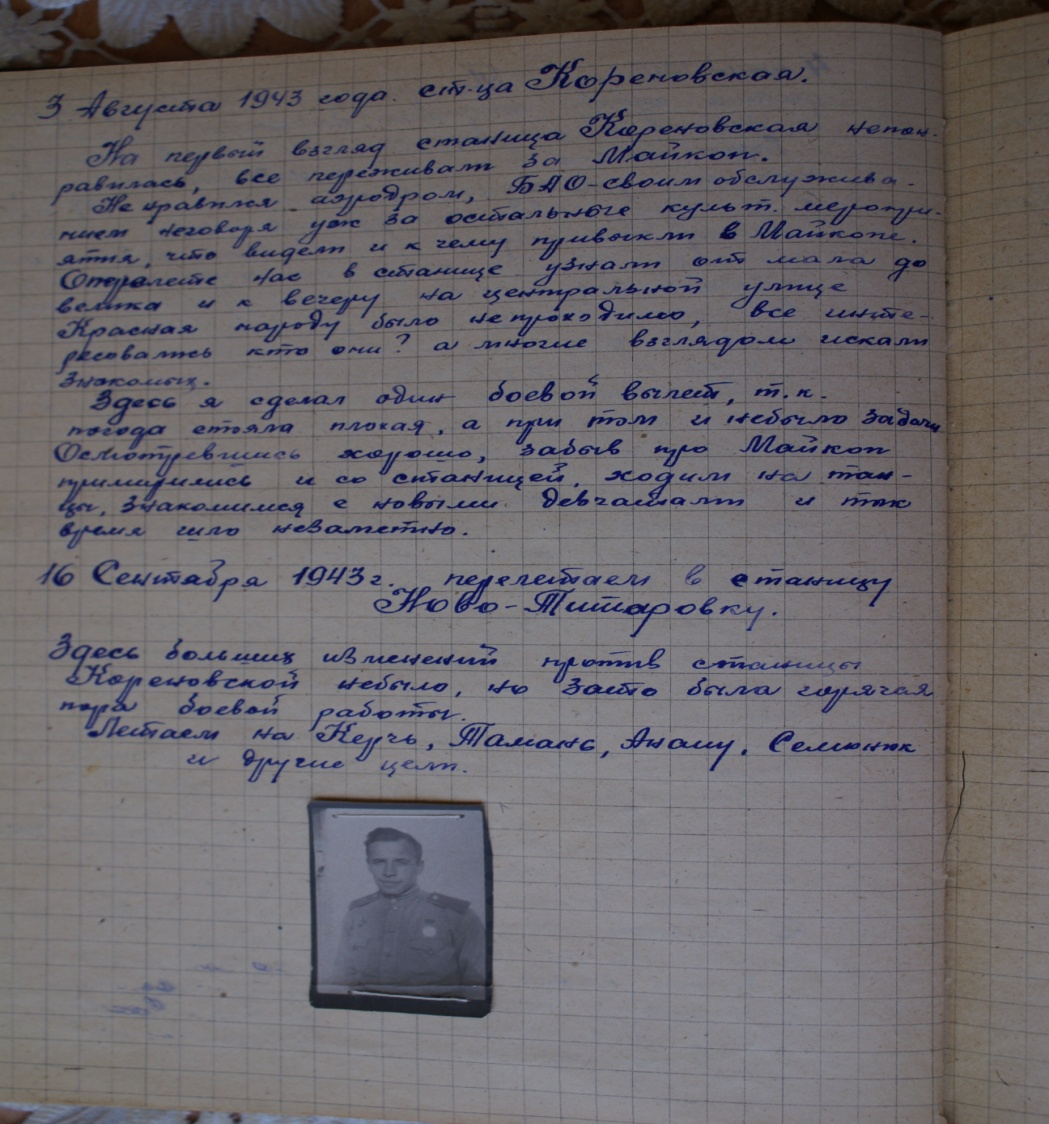 3 Августа 1943 года. ст-ца Кореновская.
На первый взгляд станица Кореновская непон-
равилась, все переживали за Майкоп.
Не нравился аэродром, БАО-своим обслужива-
нием неговоря уж за остальные культ. меропри-
ятия, что видели и к чему привыкли в Майкопе.
О перелете нас в станице узнали от мала до
велика и к вечеру на центральной улице
Красная народу было непроходимо, все инте-
ресовались кто они? а многие взглядом искали
знакомых.
Здесь я сделал один боевой вылет, т.к.
погода стояла плохая, а при том и небыло задачи
Осмотревшись хорошо, забыв про Майкоп
примирились и со станицей, ходили на тан-
цы, знакомимся с новыми девчатами и так
время шло незаметно.
16 Сентября 1943 г. перелетаем в станицу
Ново-Титаровку.
Здесь больших изменений против станицы
Кореновской небыло, но зато была горячая
пора боевой работы.
Летаем на Керчь, Тамань, Анапу, Семенюк
и другие цели.